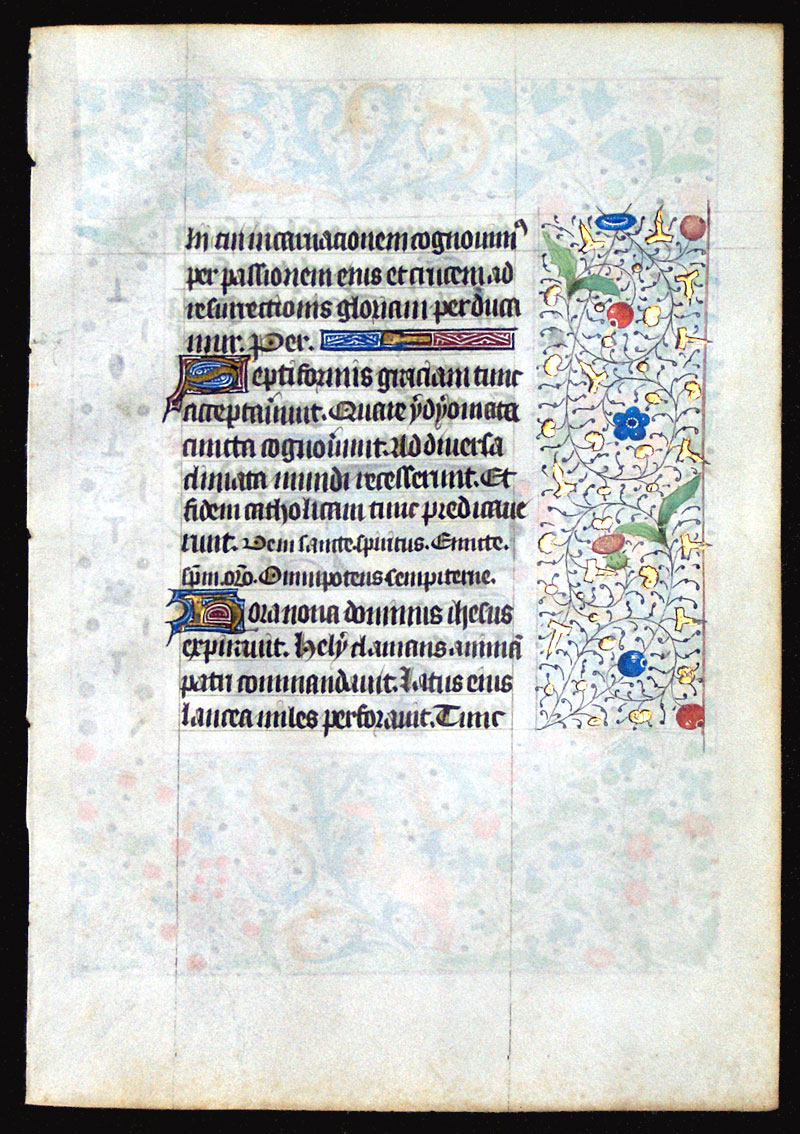 fili tui incarnacionem cognouim⁹
per passionem eius et crucem ad
resurrectionis gloriam perduca
mur. Per.
Septiformis graciam tunc
acceptauerunt. Quare ydyomata
cuncta cognouerunt. Ad diuersa
climata mundi recesserunt. Et
fidem catholicam tunc predicaue
runt. Veni sancte spiritus. Emitte.
spm. oro. Omnipotens sempiterne.
Hora nona dominus ihesus
expirauit. Hely clamans animā
patri commendauit. Latus eius
lancea miles perforauit. Tunc